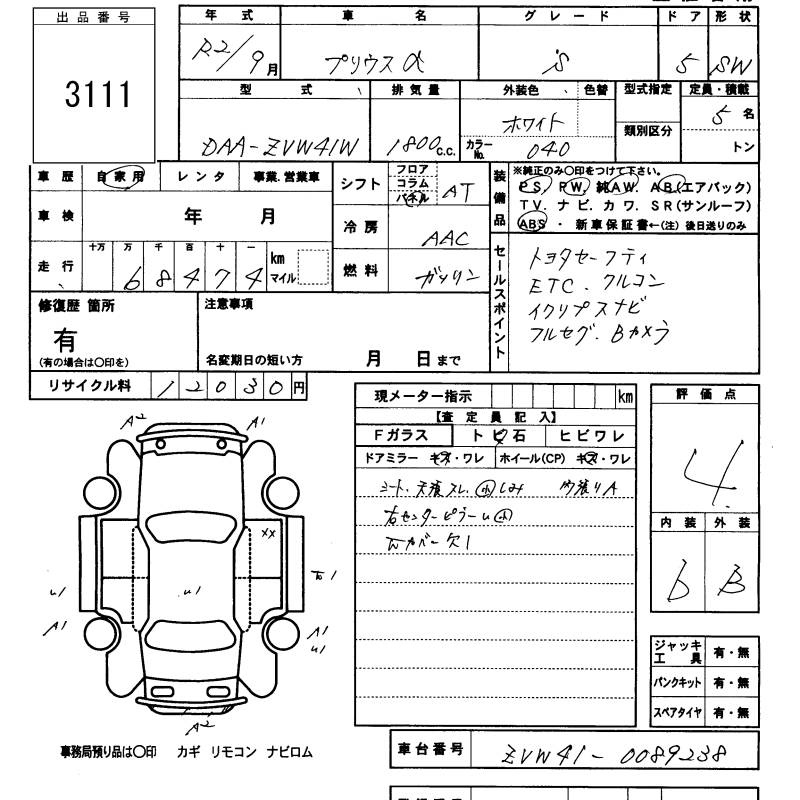 出品番号
3111
年式 車名 グレード ドア 形状
R2/9月 プリウスα S 5 SW
型式 排気量 外装色 色替 型式指定 定員・積載
DAA-ZVW41W 1800c.c. ホワイト 類別区分 5名
カラーNo. 040 トン
車歴 自家用 レンタ 事業.営業車
車検 年 月
走行 十万 万 千 百 十 一 km マイル
68474
シフト フロア コラム パネル AT
冷房 AAC
燃料 ガソリン
装備品 ※純正のみ〇印をつけて下さい。
PS. PW. 純AW. AB.(エアバック)
TV. ナビ. カワ. SR(サンルーフ)
ABS ・ 新車保証書←(注) 後日送りのみ
セールスポイント
トヨタセーフティ
ETC. クルコン
イクリプスナビ
フルセグ. Bカメラ
修復歴 箇所
有
(有の場合は〇印を)
注意事項
名変期日の短い方 月 日まで
リサイクル料 12030円
現メーター指示 km
【査定員記入】
Fガラス トビ石 ヒビワレ
ドアミラー キズ・ワレ ホイール(CP) キズ・ワレ
シート、天張スレ、小しみ 内張りA
右センターピラーU小
カバー欠1
評価点
4
内装 外装
b B
A2 A1
XX
U1 U1 1
A1 A1
U1
A2
ジャッキ 工具 有・無
パンクキット 有・無
スペアタイヤ 有・無
事務局預り品は〇印 カギ リモコン ナビロム
車台番号 ZVW41-0089238